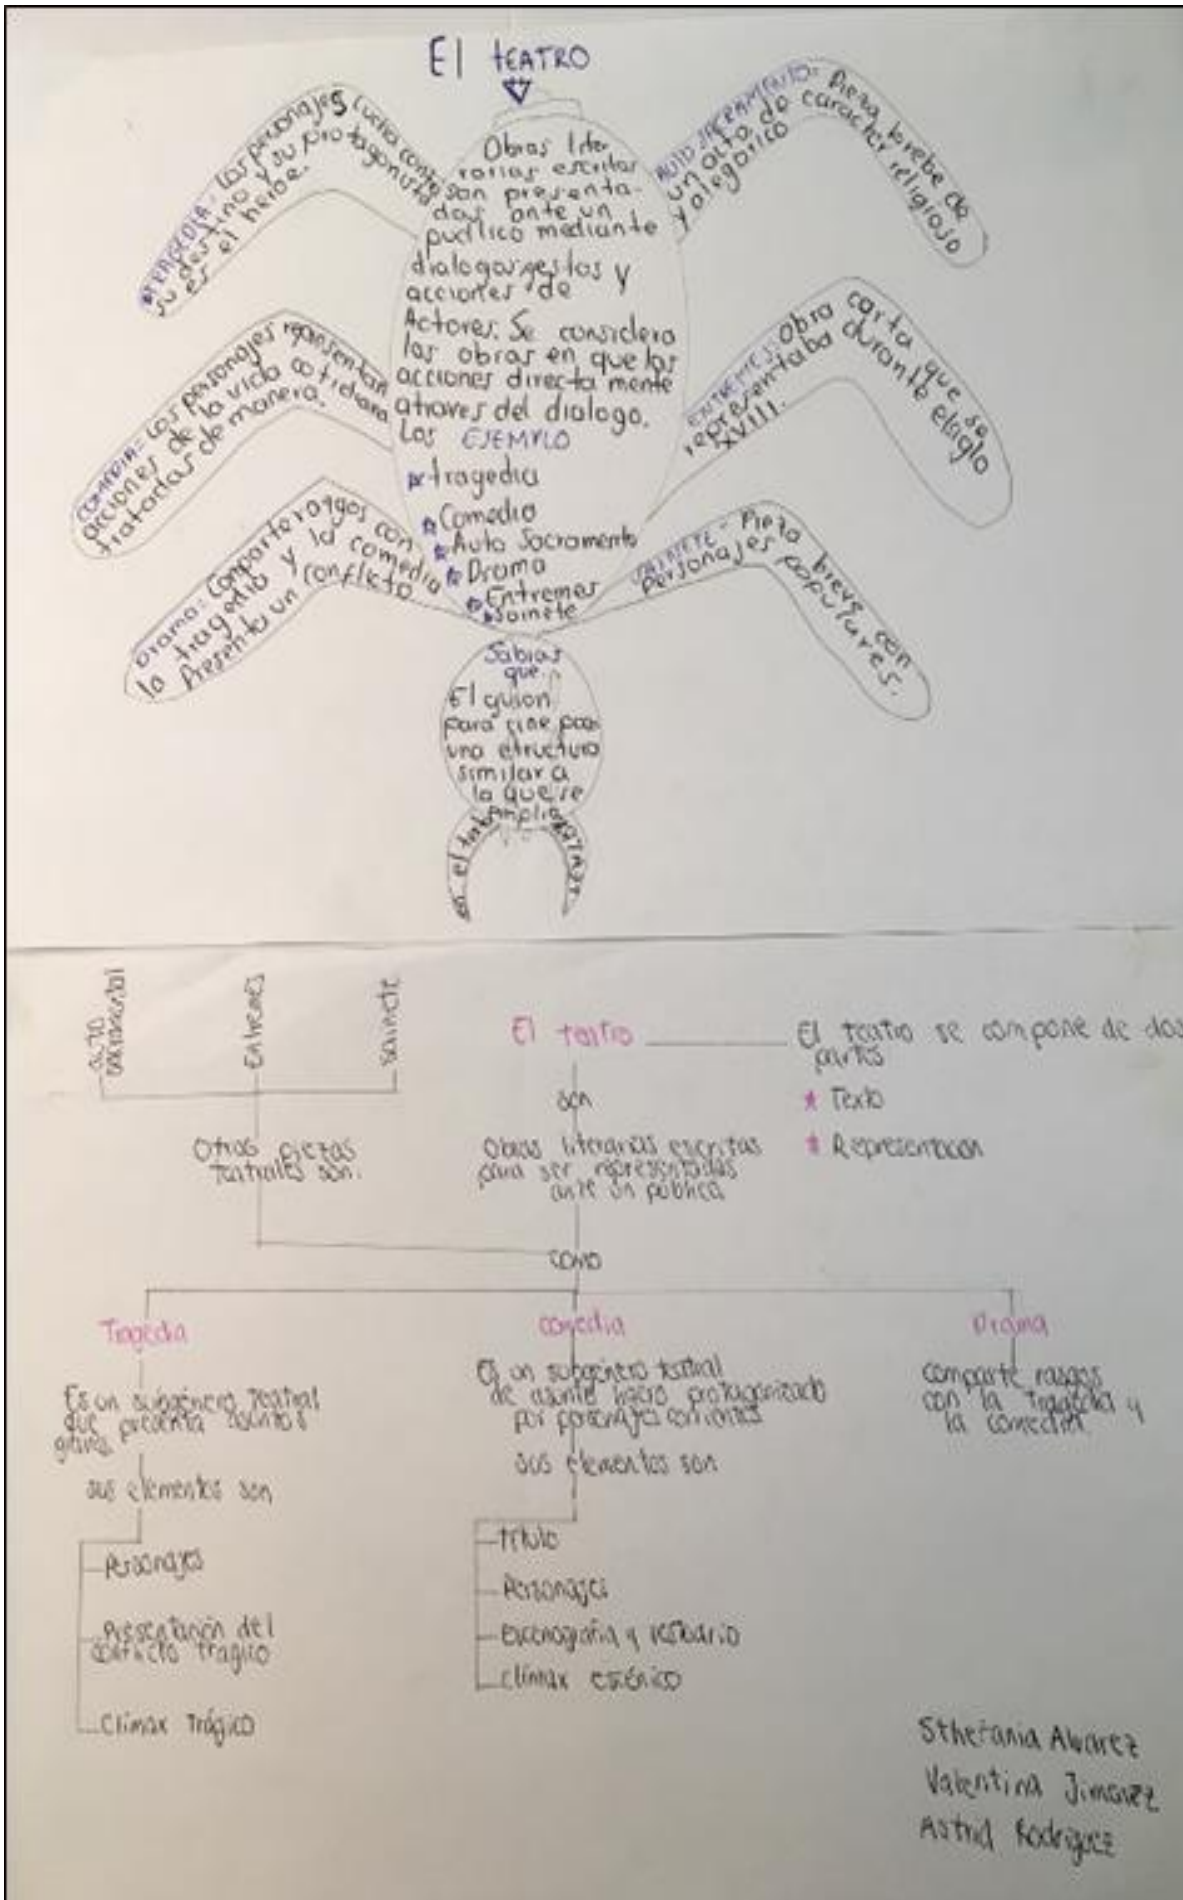 El tEATRO
Obras liter
rarias escritas
son presenta-
das ante un
publico mediante
dialogos gestos y
acciones de
Actores. Se considera
las obras en que las
acciones directa mente
atraves del dialogo.
Los EJEMPLO
tragedia
Comedia
Auto Sacramento
Drama
Entremes
Sainete
TRAGEDIA = Los personajes lucha contra
su destino y su protagonista
es el heroe.
COMEDIA = Los personajes representan
acciones de la vida cotidiana
tratadas de manera.
Drama = Comparte rasgos con
la tragedia y la comedia
Presenta un conflicto
AUTO SACRAMENTO = Pieza brebe de
un alto de caracter religioso
y alegorico
ENTREMES = Obra carta que se
representaba durante el siglo
XVIII.
SAINETE = Pieza breve con
personajes populares.
Sabias
que
El guion
para cine
una etructura
similar a
la que se
en el
auto sacramental
Entremés
sainete
Otras piezas
teatrales son.
El teatro
El teatro se compone de dos
partes
* Texto
* Representacion
son
Obras literarias escritas
para ser representadas
ante un pública
como
Tragedia
Es un subgénero teatral
que presenta asuntos
graves
sus elementos son
Personajes
Presentación del
conflicto tragico
Clímax trágico
comedia
Es un subgénero teatral
de asunto protagonizado
por personajes corrientes
sus elementos son
título
Personajes
escenografía y vestuario
clímax escénico
Drama
comparte rasgos
con la tragedia y
la comedia.
Sthefania Alvarez
Valentina Jimenez
Astrid Rodriguez